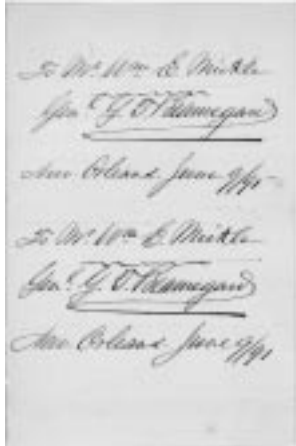 To Mr. Wm. E. Mickle
Genl. G. T. Beauregard
New Orleans June 9/91
To Mr. Wm. E. Mickle
Genl. G. T. Beauregard
New Orleans June 9/91